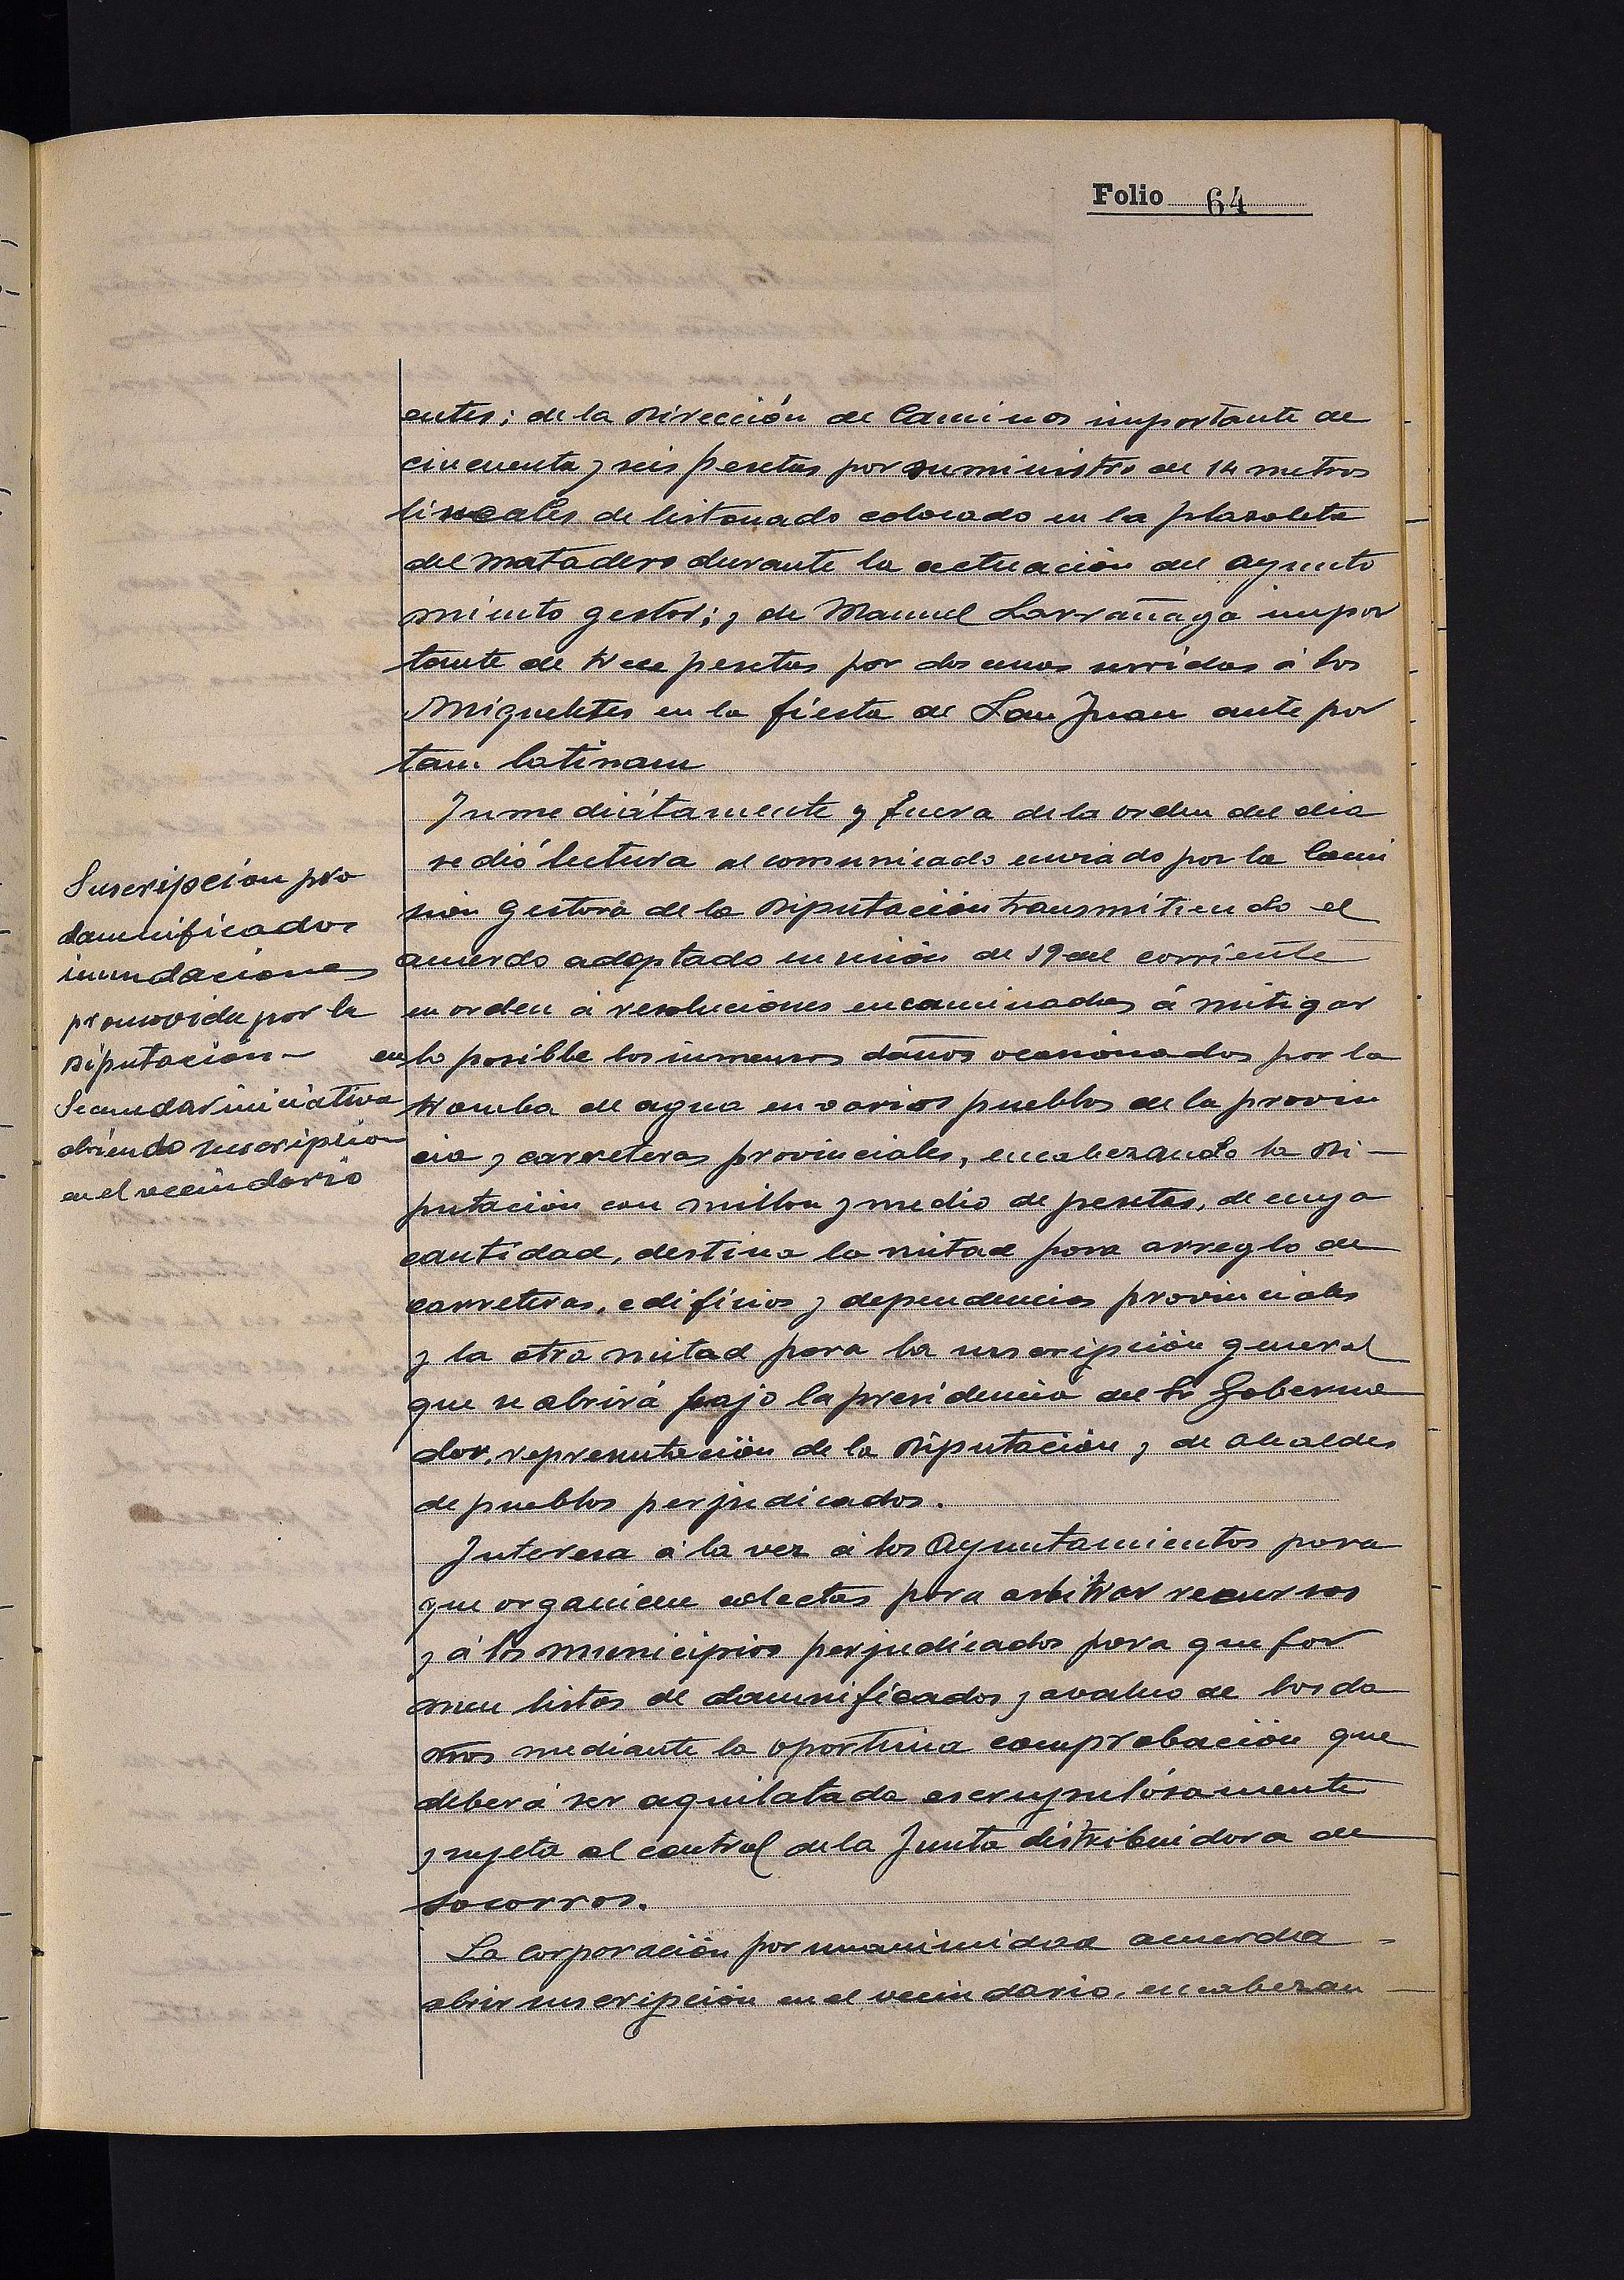 Folio 64
entes; de la Dirección de Caminos importante de
cincuenta y seis pesetas por suministro de 14 metros
lineales de listonado colocado en la plazoleta
del matadero durante la actuación del Ayunta
miento gestor; y de Manuel Larrañaga impor
tante de trece pesetas por dos cenas servidas á los
Miqueletes en la fiesta de San Juan ante por
tam latinam
Inmediátamente y fuera de la orden del dia
se dió lectura al comunicado enviado por la Comi
sión Gestora de la Diputación transmitiendo el
acuerdo adoptado en sesión de 19 del corriente
en orden á resoluciones encaminadas á mitigar
en lo posible los inmensos daños ocasionados por la
tromba de agua en varios pueblos de la provin
cia y carreteras provinciales, encabezando la Di-
putación con millon y medio de pesetas, de cuya
cantidad, destina la mitad para arreglo de
carreteras, edificios y dependencias provinciales
y la otra mitad para la suscripción general
que se abrirá bajo la presidencia del Sr Goberna
dor, representación de la Diputación y de alcaldes
de pueblos perjudicados.
Interesa á la vez á los Ayuntamientos para
que organicen colectas para arbitrar recursos
y á los municipios perjudicados para que for
men listas de damnificados y avaluo de los da
ños mediante la oportuna comprobación que
deberá ser aquilatada escrupulósamente
y sujeta al control de la Junta distribuidora de
socorros.
La Corporación por unanimidad acuerda
abrir suscripción en el vecindario, encabezan
Suscripción pro
damnificados
inundaciones
promovida por la
Diputación-
Secundar iniciativa
abriendo suscripcion
en el vecindario